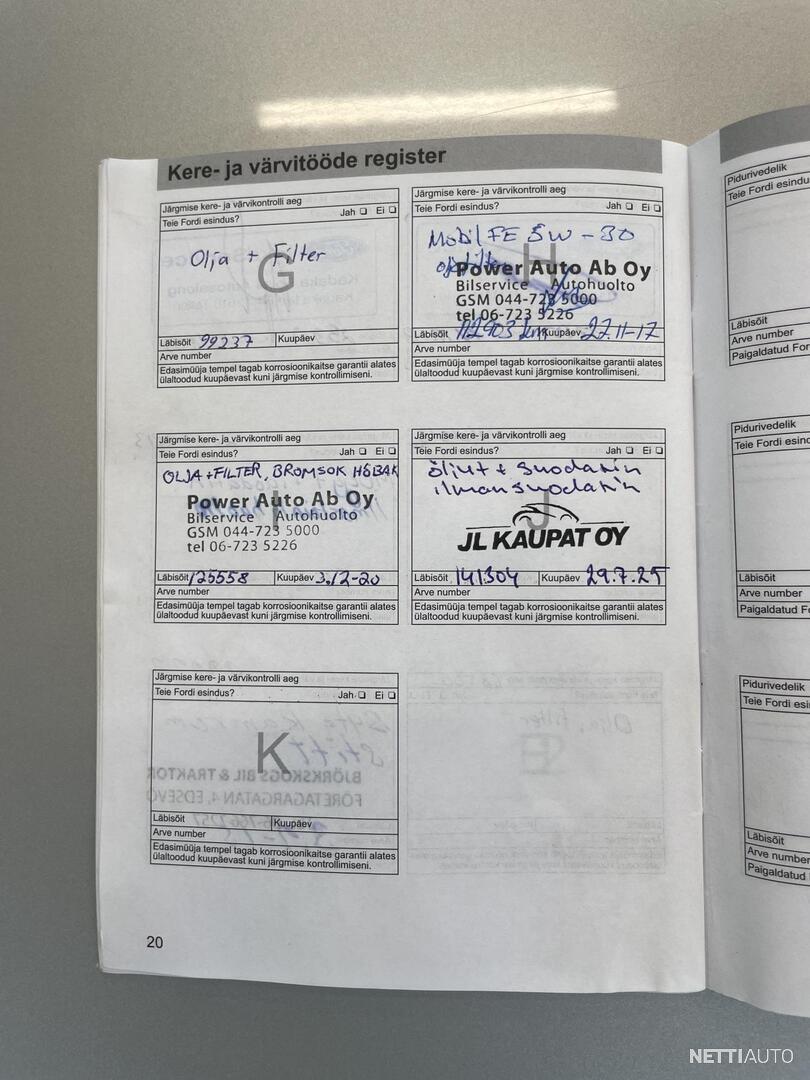 Kere- ja värvitööde register
Järgmise kere- ja värvikontrolli aeg
Teie Fordi esindus? Jah Ei
G
Olja + Filter
Läbisõit 99237 Kuupäev
Arve number
Edasimüüja tempel tagab korrosioonikaitse garantii alates
ülaltoodud kuupäevast kuni järgmise kontrollimiseni.
Järgmise kere- ja värvikontrolli aeg
Teie Fordi esindus? Jah Ei
H
Mobil FE 5W-30
Power Auto Ab Oy
Bilservice Autohuolto
GSM 044-723 5000
tel 06-723 5226
Läbisõit 112903 km Kuupäev 27.11-17
Arve number
Edasimüüja tempel tagab korrosioonikaitse garantii alates
ülaltoodud kuupäevast kuni järgmise kontrollimiseni.
Järgmise kere- ja värvikontrolli aeg
Teie Fordi esindus? Jah Ei
I
OLJA+FILTER, BROMSOK HÖBAK
Power Auto Ab Oy
Bilservice Autohuolto
GSM 044-723 5000
tel 06-723 5226
Läbisõit 125558 Kuupäev 3.12-20
Arve number
Edasimüüja tempel tagab korrosioonikaitse garantii alates
ülaltoodud kuupäevast kuni järgmise kontrollimiseni.
Järgmise kere- ja värvikontrolli aeg
Teie Fordi esindus? Jah Ei
J
öljyt + suodatin
ilmansuodatin
JL KAUPAT OY
Läbisõit 141304 Kuupäev 29.7.25
Arve number
Edasimüüja tempel tagab korrosioonikaitse garantii alates
ülaltoodud kuupäevast kuni järgmise kontrollimiseni.
Järgmise kere- ja värvikontrolli aeg
Teie Fordi esindus? Jah Ei
K
Läbisõit Kuupäev
Arve number
Edasimüüja tempel tagab korrosioonikaitse garantii alates
ülaltoodud kuupäevast kuni järgmise kontrollimiseni.
20
Pidurivedelik
Teie Fordi esindu
Läbisõit
Arve number
Paigaldatud For
Pidurivedelik
Teie Fordi esindu
Läbisõit
Arve number
Paigaldatud Fo
Pidurivedelik
Teie Fordi esi
Läbisõit
Arve number
Paigaldatud
NETTIAUTO